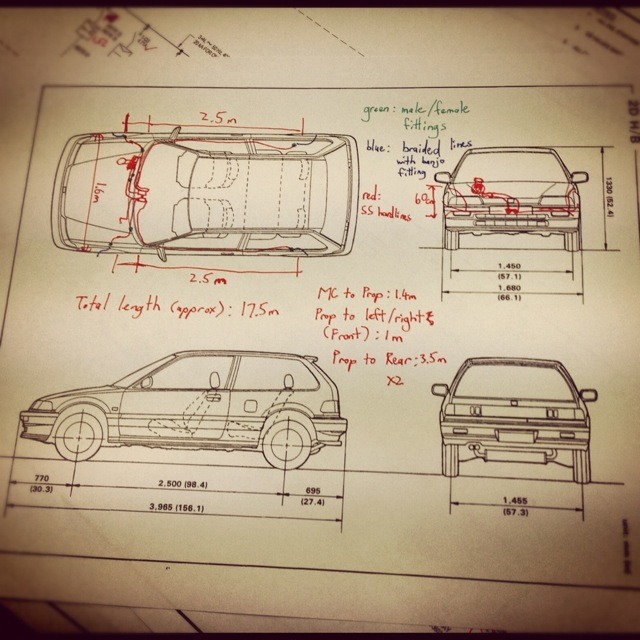 2.5m
green: male/female
fittings
blue: braided lines
with banjo
fitting
1.6m
red:
SS hardlines
60cm
1330 (52.4)
2.5m
1.450
(57.1)
1.680
(66.1)
Total length (approx): 17.5m
MC to Prop: 1.4m
Prop to left/right
(Front): 1m
Prop to Rear: 3.5m
X2
770
(30.3)
2.500 (98.4)
695
(27.4)
3,965 (156.1)
1,455
(57.3)